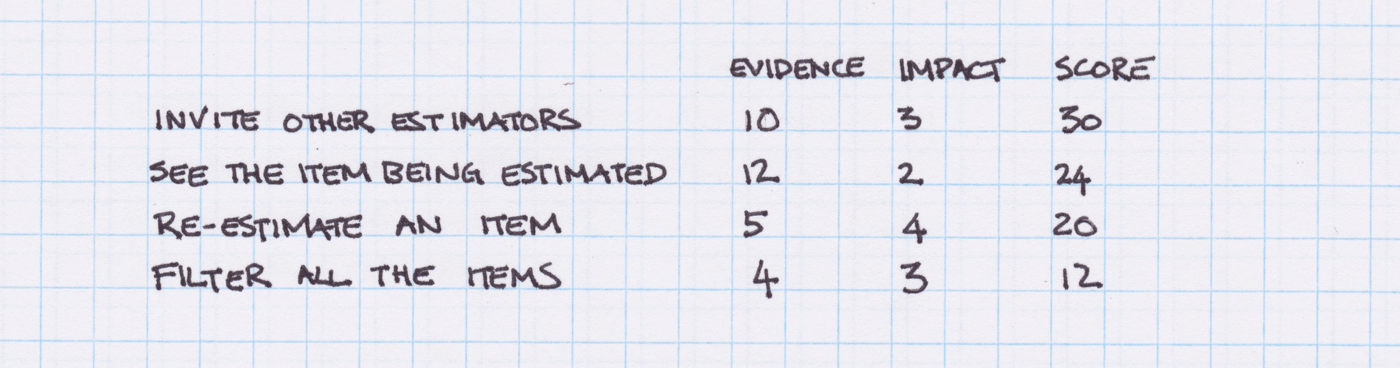 EVIDENCE IMPACT SCORE
INVITE OTHER ESTIMATORS 10 3 30
SEE THE ITEM BEING ESTIMATED 12 2 24
RE-ESTIMATE AN ITEM 5 4 20
FILTER ALL THE ITEMS 4 3 12